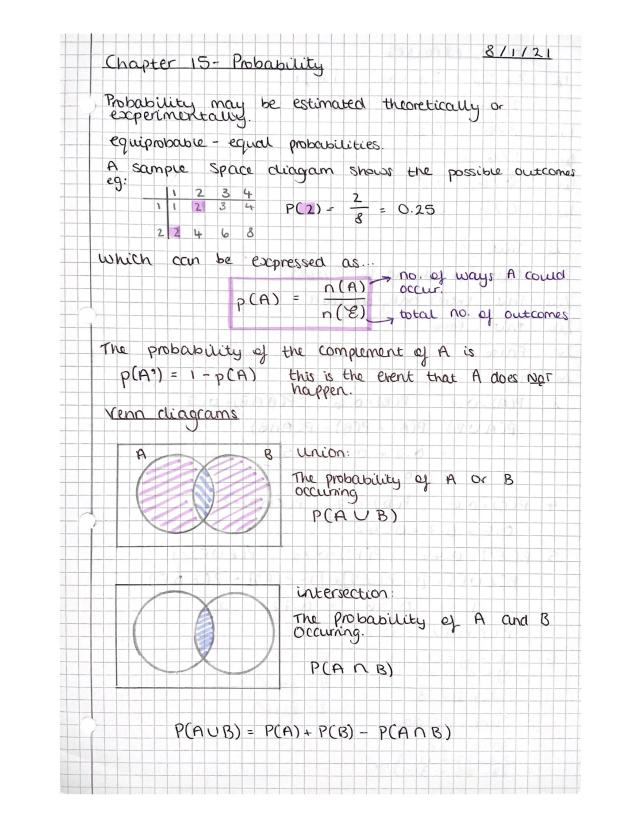 8/1/21
Chapter 15- Probability
Probability may be estimated theoretically or
experimentally.
equiprobable - equal probabilities.
A sample space diagam shows the possible outcomes
eg:
1 2 3 4
1 1 2 3 4
2 2 4 6 8
P(2) = 2/8 = 0.25
which can be expressed as...
p(A) = n(A)/n(ℰ)
no. of ways A could
occur.
total no. of outcomes
The probability of the complement of A is
p(A') = 1 - p(A) this is the event that A does NOT
happen.
Venn diagrams
A B
Union:
The probability of A or B
occuring
P(A ∪ B)
intersection:
The probability of A and B
Occurring.
P(A ∩ B)
P(A∪B) = P(A) + P(B) - P(A∩B)